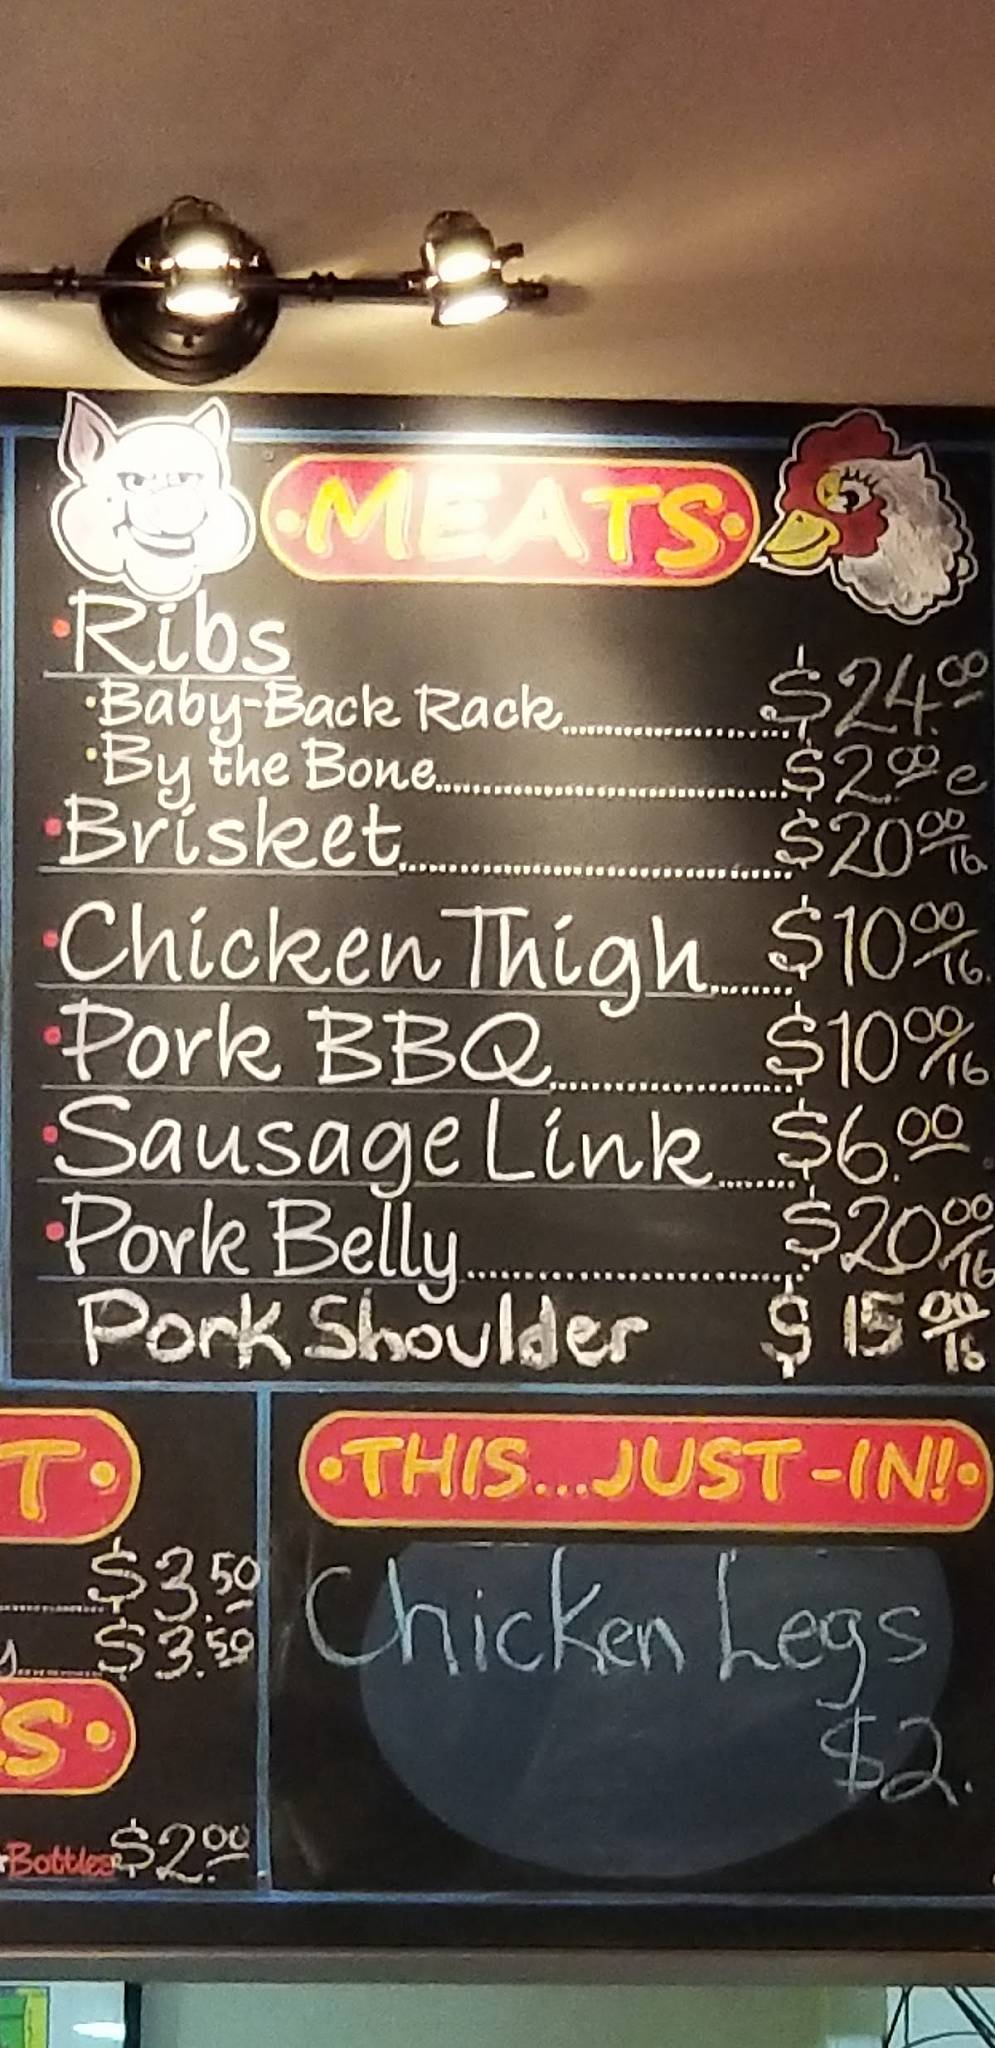 MEATS
Ribs
Baby-Back Rack $24.00
By the Bone $2.00 e
Brisket $20.00/lb
Chicken Thigh $10.00/lb.
Pork BBQ $10.00/lb
Sausage Link $6.00
Pork Belly $20.00/lb
Pork Shoulder $15.00/lb
T
$3.50
y $3.50
S
Bottles $2.00
THIS...JUST-IN!
Chicken Legs
$2.